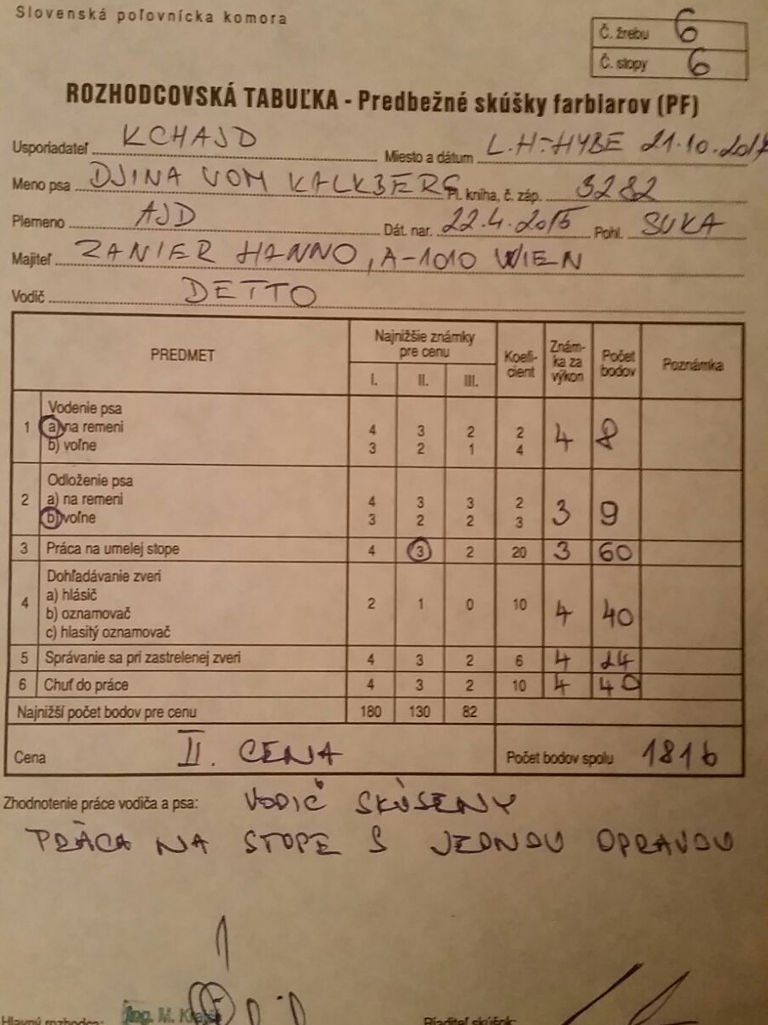 Slovenská poľovnícka komora
Č. žrebu 6
Č. stopy 6
ROZHODCOVSKÁ TABUĽKA - Predbežné skúšky farbiarov (PF)
Usporiadateľ KCHAJD Miesto a dátum L.H-HYBE 21.10.2017
Meno psa DJINA VOM KALKBERG Pl. kniha, č. záp. 3282
Plemeno AJD Dát. nar. 22.4.2015 Pohl. SUKA
Majiteľ ZANIER HANNO, A-1010 WIEN
Vodič DETTO
PREDMET Najnižšie známky pre cenu Koefi-cient Znám-ka za výkon Počet bodov Poznámka
I. II. III.
1 Vodenie psa
a) na remeni 4 3 2 2 4 8
b) voľne 3 2 1 4
2 Odloženie psa
a) na remeni 4 3 3 2
b) voľne 3 2 2 3 3 9
3 Práca na umelej stope 4 3 2 20 3 60
4 Dohľadávanie zveri
a) hlásič 2 1 0 10 4 40
b) oznamovač
c) hlasitý oznamovač
5 Správanie sa pri zastrelenej zveri 4 3 2 6 4 24
6 Chuť do práce 4 3 2 10 4 40
Najnižší počet bodov pre cenu 180 130 82
Cena II. CENA Počet bodov spolu 181b
Zhodnotenie práce vodiča a psa: VODIČ SKÚSENY
PRÁCA NA STOPE S JEDNOU OPRAVOU
Hlavný rozhodca: Ing. M.
Riaditeľ skúšok: